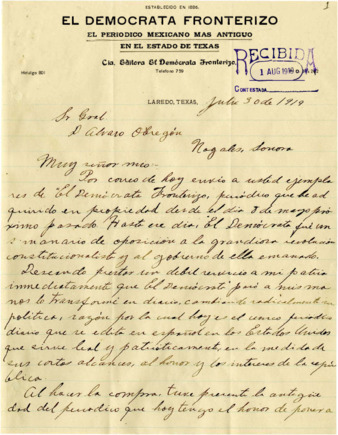 ESTABLECIDO EN 1886.
EL DEMOCRATA FRONTERIZO
EL PERIODICO MEXICANO MAS ANTIGUO
EN EL ESTADO DE TEXAS
Cia. Editora El Demócrata Fronterizo.
Hidalgo 901
Telefono 759
RECIBIDA
1 AUG 1919
CONTESTADA
LAREDO, TEXAS, Julio 30 de 1919
Sr Gral
D Alvaro Obregón
Nogales, Sonora
Muy señor mio:
Por correo de hoy envío a usted ejempla
res de El Demócrata Fronterizo, periódico que he ad
quirido en propiedad desde el día 8 de mayo pró
ximo pasado. Hasta ese día, El Demócrata fué un
semanario de oposición a la grandiosa revolución
constitucionalista y al gobierno de ella emanado.
Deseando prestar un débil servicio a mi patria
inmediatamente que El Demócrata pasó a mis ma
nos lo transformé en diario, cambiando radicalmente su
política, razón por la cual hoy es el único periódico
diario que se edita en español en los Estados Unidos
que sirve leal y patrióticamente, en la medida de
sus cortos alcances, al honor y los intereses de la repú
blica.
Al hacer la compra, tuve presente la antigüe
dad del periódico que hoy tengo el honor de poner a